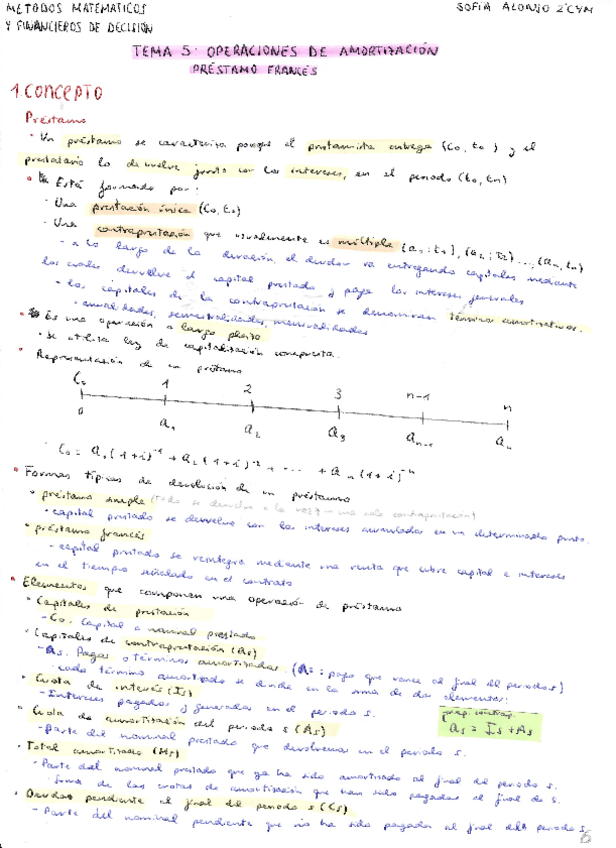 METODOS MATEMATICOS
Y FINANCIEROS DE DECISION
SOFIA ALONSO 2ºCYM
TEMA 5: OPERACIONES DE AMORTIZACIÓN
PRÉSTAMO FRANCÉS
1. CONCEPTO
Préstamo
· Un préstamo se caracteriza porque el prestamista entrega (C₀, t₀) y el
prestatario lo devuelve junto con los intereses, en el periodo (t₀, tn)
• Está formado por:
· Una prestación única (C₀, t₀)
· Una contraprestación que usualmente es múltiple (a₁; t₁), (a₂; t₂) ..., (an, tn)
- a lo largo de la duración, el deudor va entregando capitales mediante
los cuales devuelve el capital prestado y paga los intereses generales
- los capitales de la contraprestación se denominan términos amortizativos.
- anualidades, semestralidades, mensualidades
• Es una operación a largo plazo
· Se utiliza ley de capitalización compuesta.
• Representación de un préstamo
C₀ 1 2 3 n-1 n
0 a₁ a₂ a₃ an-1 an
· C₀ = a₁(1+i)⁻¹ + a₂(1+i)⁻² + ... + an(1+i)⁻ⁿ
• Formas típicas de devolución de un préstamo
• préstamo simple (todo se devuelve a la vez → una sola contraprestación)
- capital prestado se devuelve con los intereses acumulados en un determinado punto.
• préstamo francés
- capital prestado se reintegra mediante una renta que cubre capital e intereses
en el tiempo señalado en el contrato
• Elementos que componen una operación de préstamo
· Capitales de prestación
- C₀. Capital o nominal prestado
· Capitales de contraprestación (As)
- As. Pagos o términos amortizativos. (As: pago que vence al final del periodo s)
· cada término amortizativo se divide en la suma de dos elementos:
· Cuota de interés (Is)
- Intereses pagados y generados en el periodo s.
as = Is + As
· Cuota de amortización del periodo s (As)
- Parte del nominal prestado que devolvemos en el periodo s.
· Total amortizado (Ms)
- Parte del nominal prestado que ya ha sido amortizado al final del periodo s.
· Suma de las cuotas de amortización que han sido pagadas al final de s.
· Deuda pendiente al final del periodo s (Cs)
- Parte del nominal pendiente que no ha sido pagada al final del periodo s.